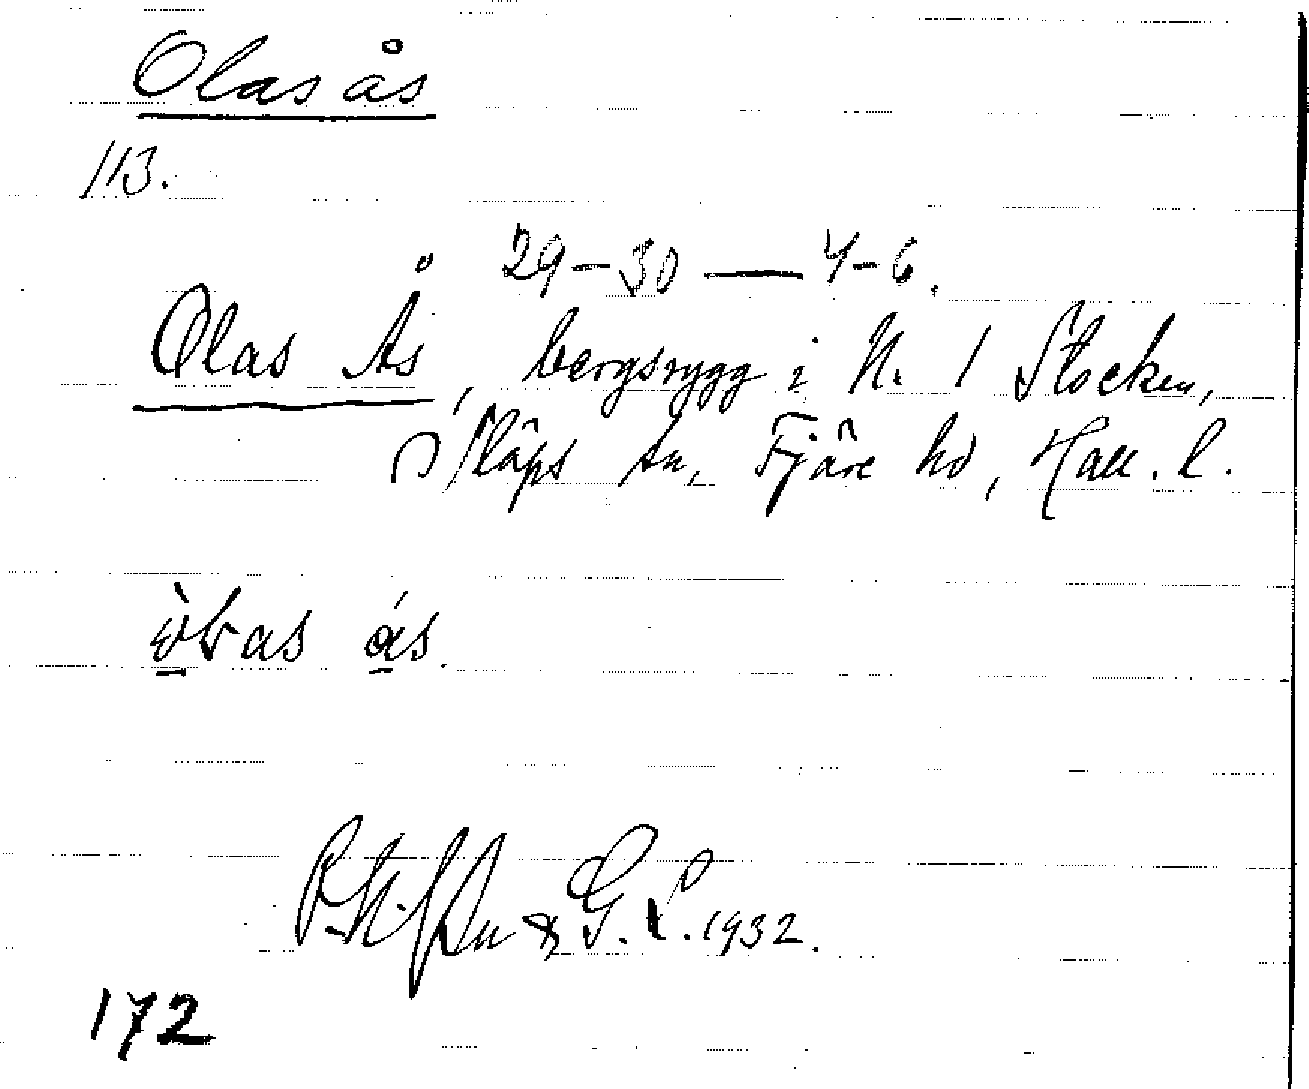 Olas ås
113.
29–30 — 4–6.
Olas Ås, bergsrygg i N. 1 Stocken,
Släps sn, Fjäre hd, Hall. l.
as ás.
& G. L. 1932.
172